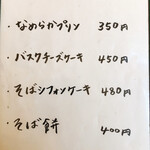 ・なめらかプリン 350円
・バスクチーズケーキ 450円
・そばシフォンケーキ 480円
・そば餅 400円